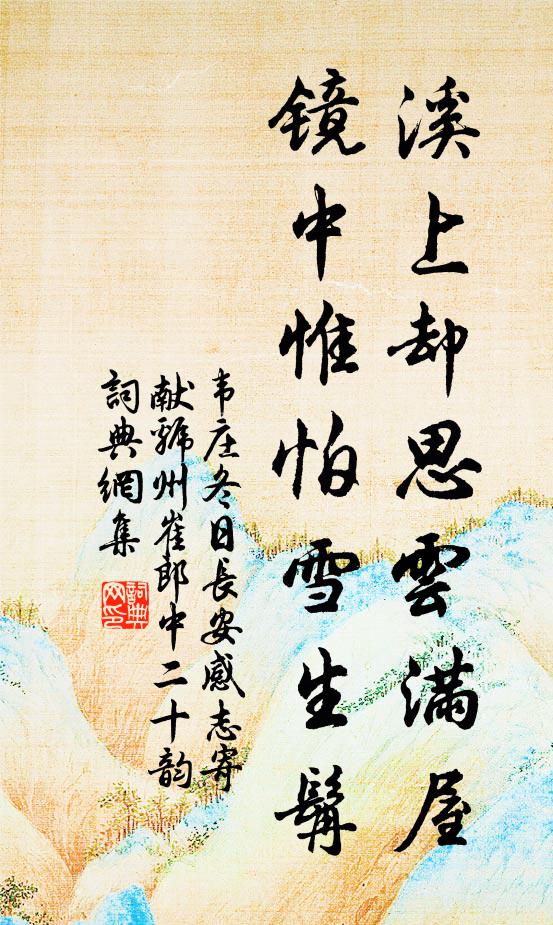 溪上却思雲滿屋
镜中惟怕雪生髯
韦庄冬日長安感志寄
献虢州崔郎中二十韵
詞典網集
詞典网印